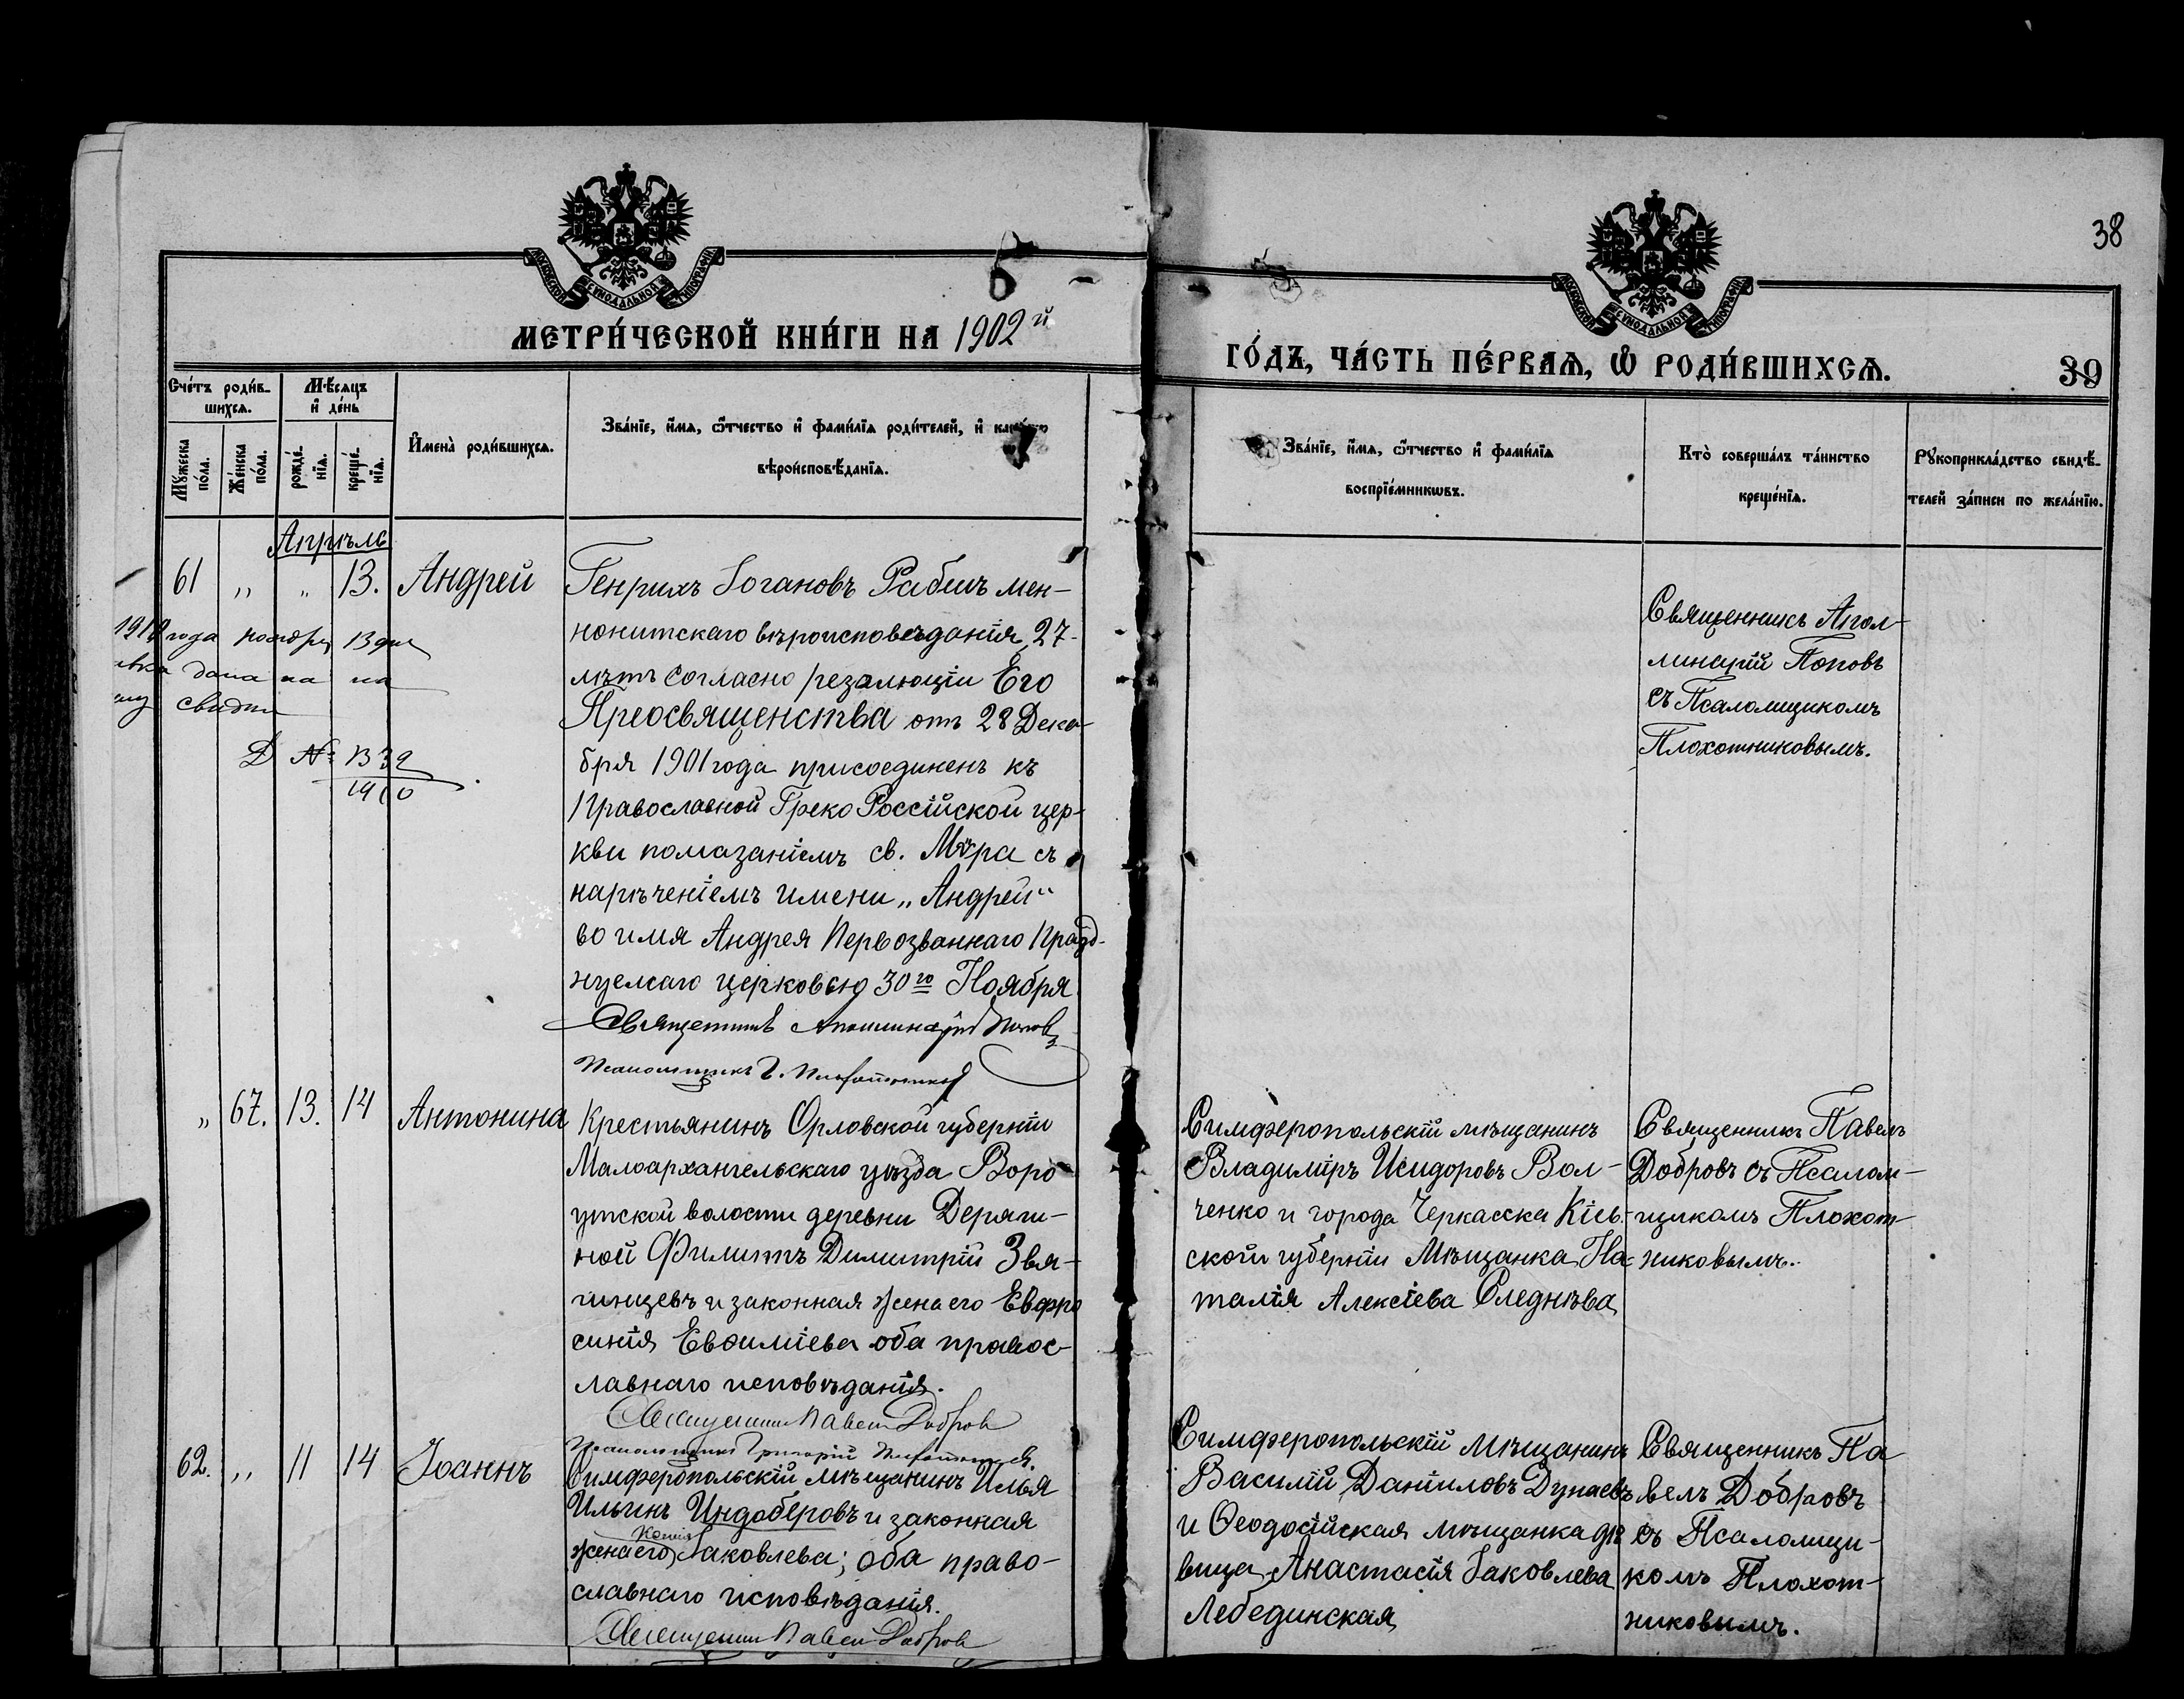 38
МОСКОВСКОЙ СѴНОДАЛЬНОЙ ТИПОГРАФІИ
МОСКОВСКОЙ СѴНОДАЛЬНОЙ ТИПОГРАФІИ
МЕТРИ́ЧЕСКОЙ КНИ́ГИ НА 1902й
ГО́ДЪ, ЧА́СТЬ ПЕ́РВАѦ, Ѡ РОДИ́ВШИХСѦ.
39
Счéтъ роди́в-
шихсѧ.
Мꙋжеска
пóла.
Жéнска
пóла.
Мѣ́сѧцъ
и҆ дéнь
рождé-
нїѧ.
крещé-
нїѧ.
И҆менà роди́вшихсѧ.
Звáнїе, и҆́мѧ, ѻ҆́тчество и҆ фами́лїѧ роди́телей, и҆
вѣроисповѣ́данїѧ.
Звáнїе, и҆́мѧ, ѻ҆́тчество и҆ фами́лїѧ
воспрїéмникѡвъ.
Ктò совершáлъ тáинство
крещéнїѧ.
Рꙋкоприклáдство свидѣ́-
телей зáписи по желáнїю.
Апрѣль
61 „ „ 13. Андрей
Генрихъ Іогановъ Рабишъ мен-
нонитскаго вѣроисповѣданія, 27-
лѣтъ согласно резалюціи Его
Преосвященства отъ 28 Дека-
бря 1901 года присоединенъ къ
Православной Греко Россійской цер-
кви помазаніемъ св. Мѵра съ
нарѣченіемъ имени „Андрей“
во имя Андрея Первозваннаго Празд-
нуемаго церковью 30го Ноября
Священникъ Аполлинарій Поповъ
Псаломщикъ Г. Плохотниковъ
Священникъ Апол-
линарій Поповъ
съ Псаломщикомъ
Плохотниковымъ.
года ноября 13 дня
дана на
свидет
№ 1339
1910
„ 67. 13. 14 Антонина
Крестьянинъ Орловской губерніи
Малоархангельскаго уѣзда Воро
утской волости деревни Деряги-
ной Филиппъ Димитрій Звя-
гинцевъ и законная жена его Евфро
синія Евѳиміева оба правос-
лавнаго исповѣданія.
Священникъ Павелъ Добровъ
Псаломщикъ Григорій Плохотниковъ.
Симферопольскій мѣщанинъ
Владиміръ Исидоровъ Вол-
ченко и города Черкасска Кіев-
ской губерніи Мѣщанка На-
талія АлексіеваСледнѣва
Священникъ Павелъ
Добровъ съ Псалом-
щикомъ Плохот-
никовымъ.
62. „ 11 14 Іоаннъ
Симферопольскій мѣщанинъ Илья
Ильинъ Индоберовъ и законная
жена его Іаковлева; оба право-
славнаго исповѣданія.
Священникъ Павелъ Добровъ
Симферопольскій Мѣщанинъ
Василій Даніиловъ Дунаевъ
и Ѳеодосійская мѣщанка дѣ
вица Анастасія Іаковлева
Лебединская
Священникъ Па
велъ Добровъ
съ Псаломщи-
комъ Плохот-
никовымъ.